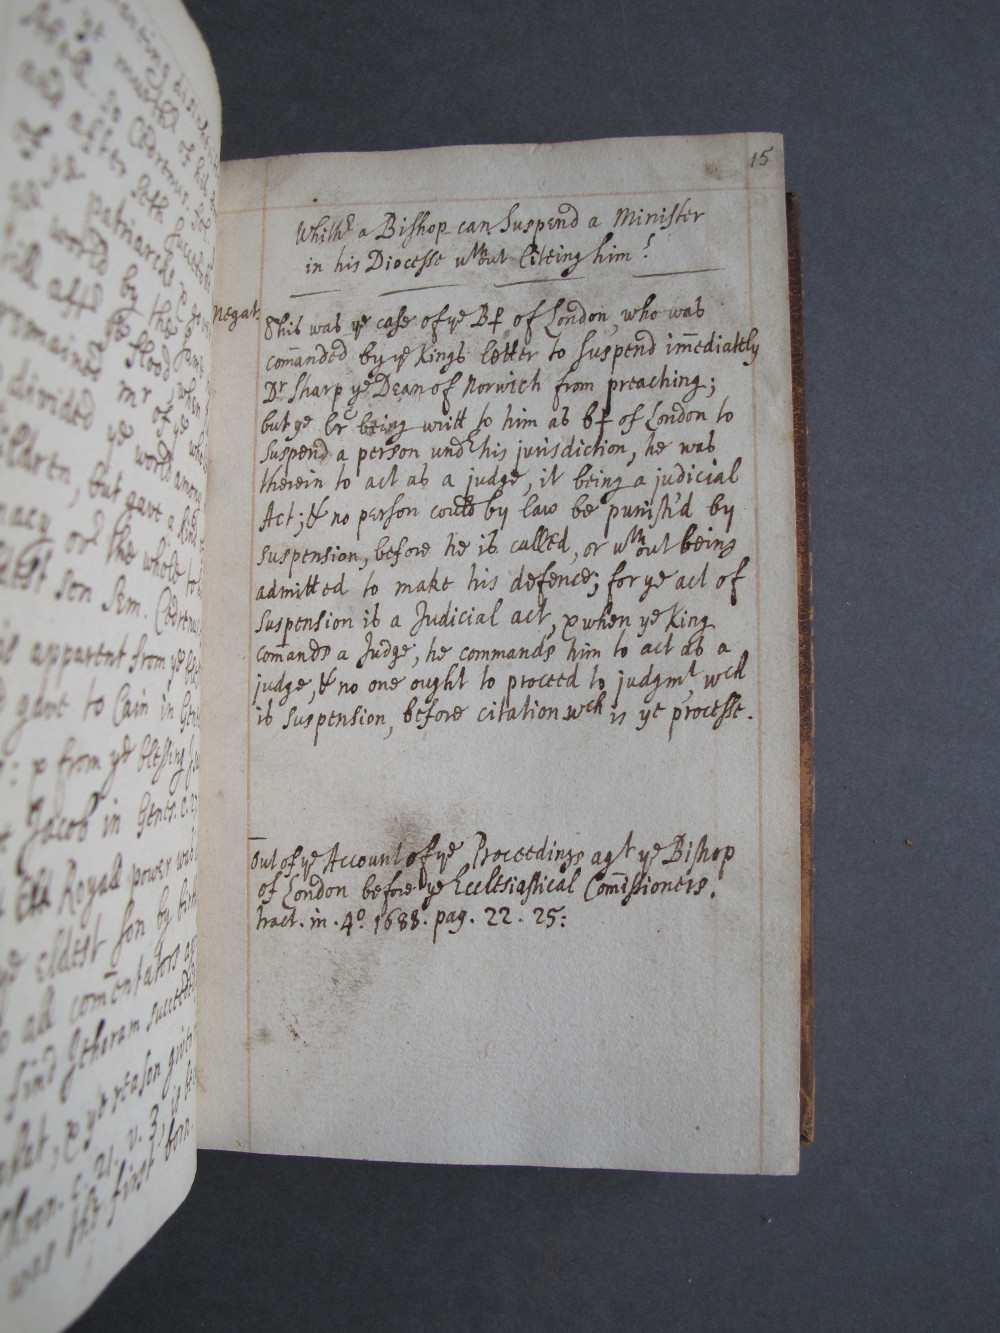 15
Whithr a Bishop can Suspend a Minister
in his Diocesse wthout Citeing him?
Negat:
This was ye case of ye Bp of London, who was
com̄anded by ye Kings letter to suspend im̄ediately
Dr Sharp ye Dean of Norwich from preaching;
but ye lr being writt to him as bp of London to
suspend a person undr his jurisdiction, he was
therein to act as a judge, it being a judicial
Act; & no person could by law be punish'd by
suspension, before he is called, or wthout being
admitted to make his defence; for ye act of
suspension is a Judicial act, & when ye King
com̄ands a Judge, he commands him to act as a
judge, & no one ought to proceed to judgmt, wch
is suspension, before citation wch is ye processe.
Out of ye Account of ye Proceedings agt ye Bishop
of London before ye Ecclesiastical Com̄issioners.
tract. in. 4o. 1688. pag. 22. 25:
of ye patriarchs
world by the
ye flood, when
remained mr of ye
divided ye world among
children, but gave a kind
the whole to
eldest son Sem. Cedrenus
is apparent from ye
gave to Cain in Gene
: & from ye blessing
Jacob in Genes. c. 27
Royall power was
ye eldest son by birth
all com̄entators
find Jehoram succeeded
& ye reason given
Chron. c. 21. v. 3, is
was the first born.